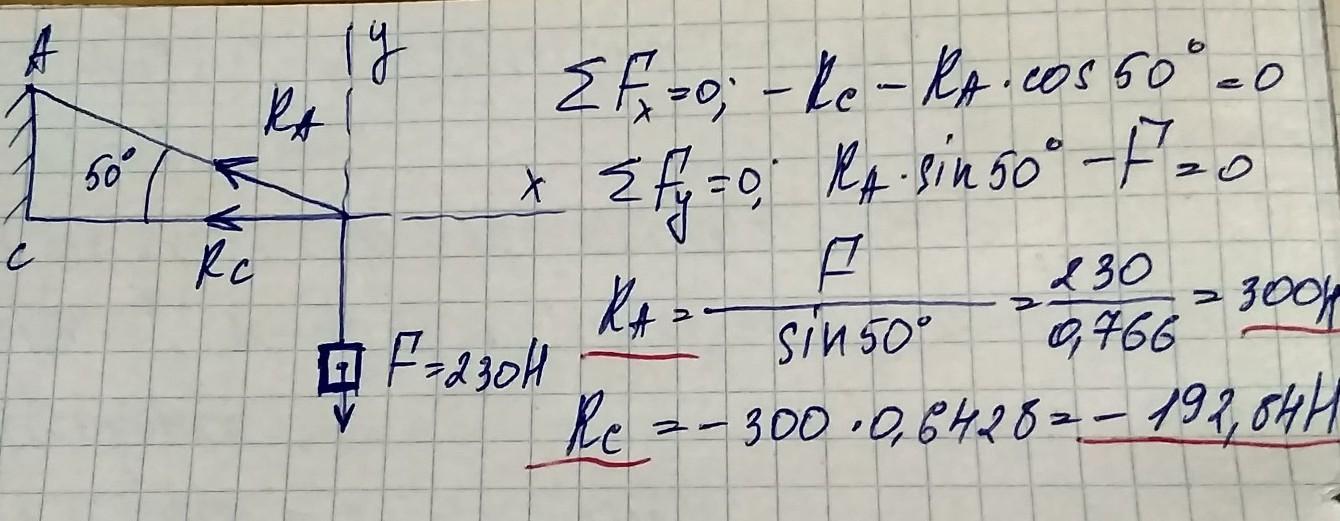 A
y
R_A
50°
x
C
R_C
F=230H
ΣF_x=0; -R_C - R_A·cos50°=0
ΣF_y=0; R_A·sin50° - F=0
R_A = F / sin50° = 230 / 0,766 = 300H
R_C = -300·0,6428 = -192,84H